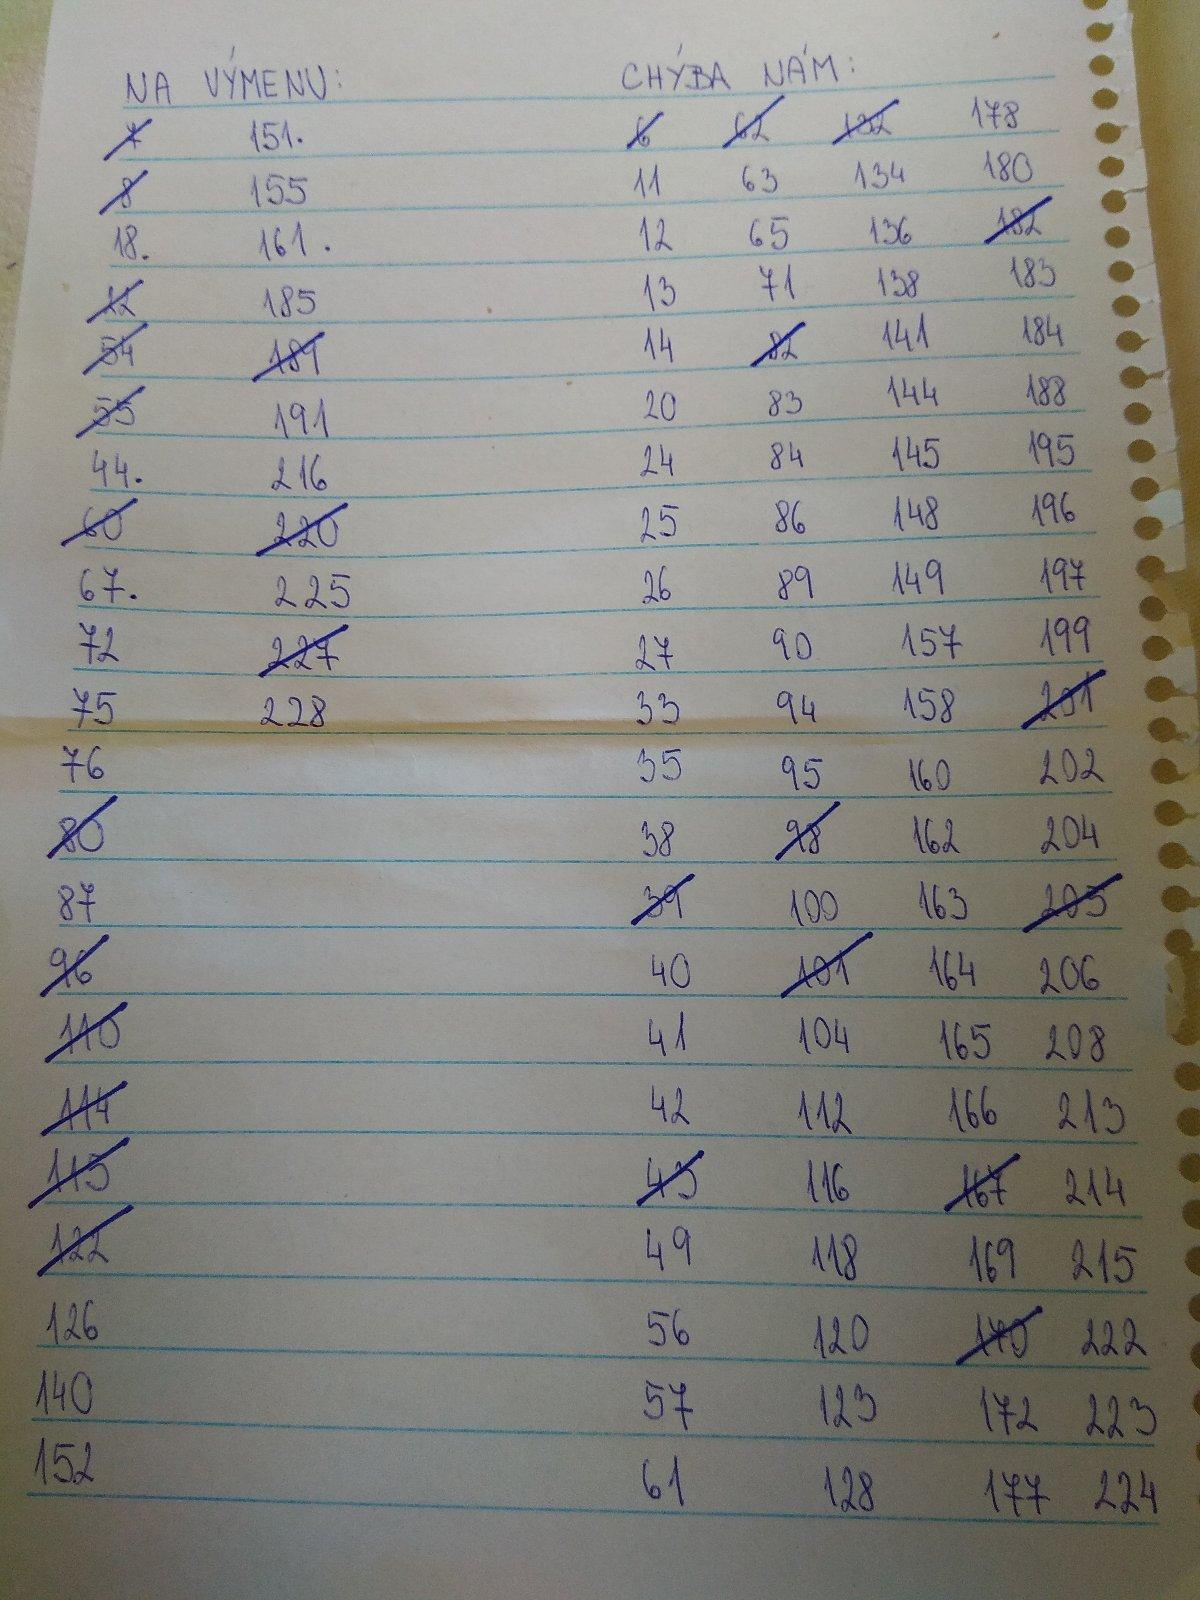 NA VÝMENU: CHÝBA NÁM:
7 151. 6 62 132 178
8 155 11 63 134 180
18. 161. 12 65 136 182
12 185 13 71 138 183
54 189 14 82 141 184
55 191 20 83 144 188
44. 216 24 84 145 195
60 220 25 86 148 196
67. 225 26 89 149 197
72 227 27 90 157 199
75 228 33 94 158 201
76 35 95 160 202
80 38 98 162 204
87 39 100 163 205
96 40 101 164 206
110 41 104 165 208
114 42 112 166 213
115 43 116 167 214
122 49 118 169 215
126 56 120 170 222
140 57 123 172 223
152 61 128 177 224